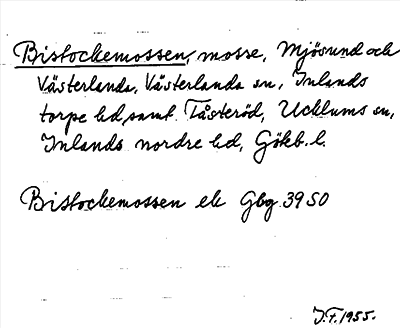 Bistockemossen, mosse, Mjösund och
Västerlanda, Västerlanda sn, Inlands
torpe hd, samt Tåsteröd, Ucklums sn,
Inlands nordre hd, Göteb. l.
Bistockemossen ek Gbg 39 SO
J.F. 1955.